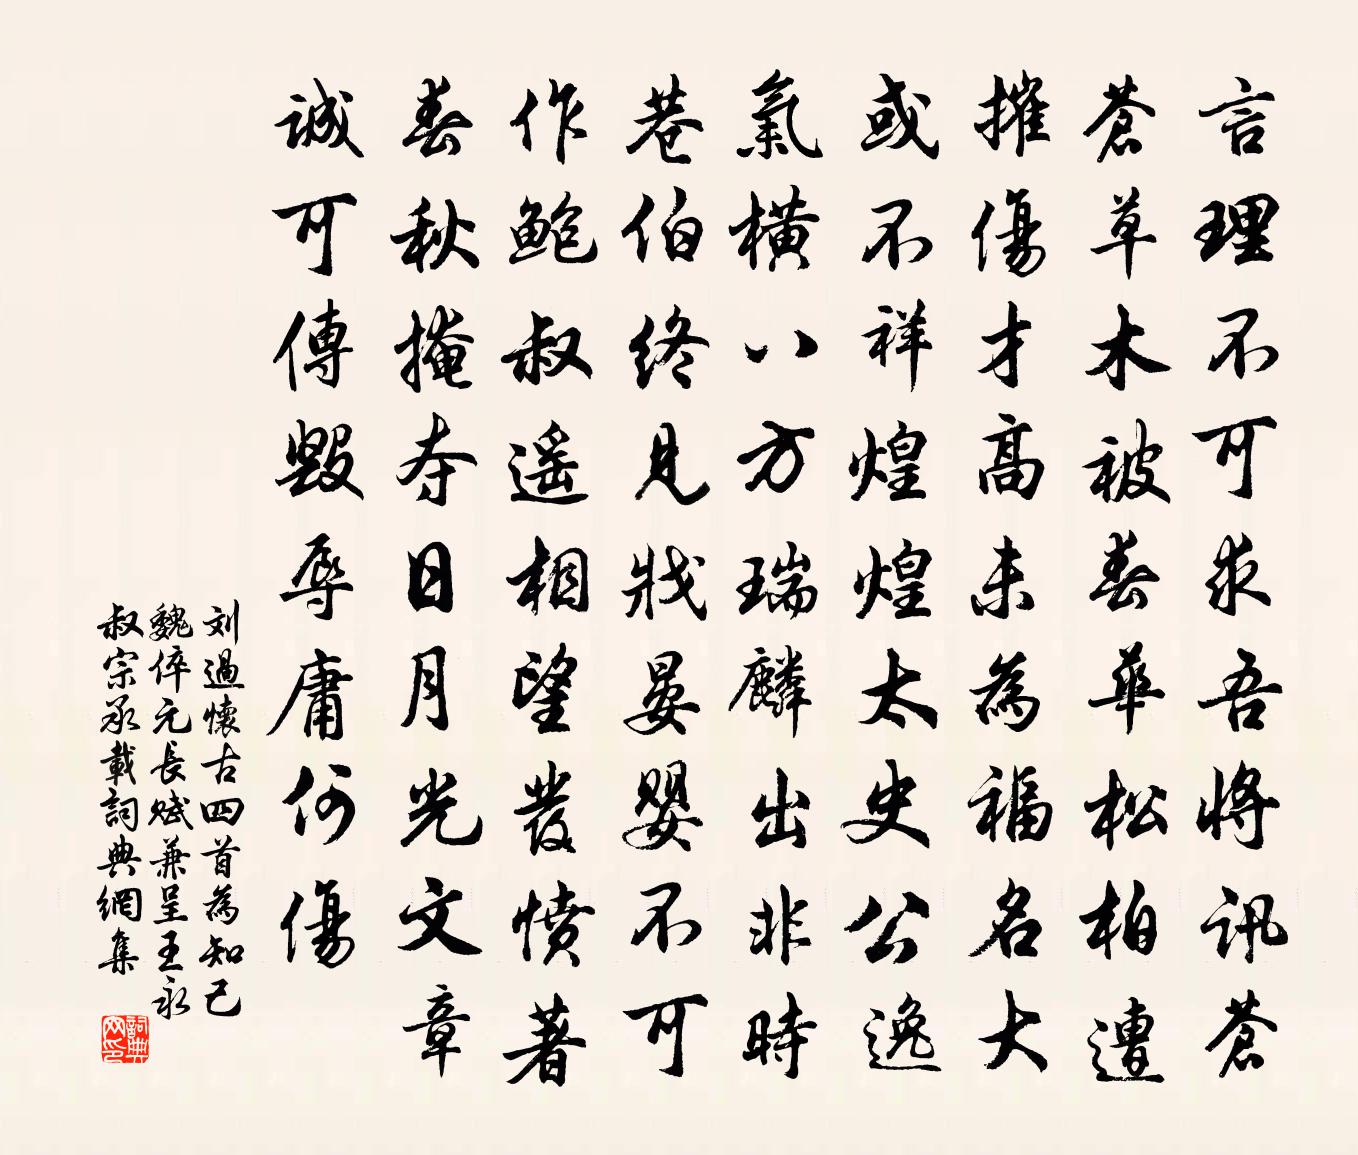 言理不可求吾將訊蒼
蒼草木被春華松柏遭
摧傷才高未為福名大
或不祥煌煌太史公逸
氣橫八方瑞麟出非時
巷伯終見戕晏嬰不可
作鮑叔遥相望發憤著
春秋掩夺日月光文章
誠可傳毀辱庸何傷
刘過懷古四首為知己
魏倅元長賦兼呈王永
叔宗丞載詞典網集
詞典
网印